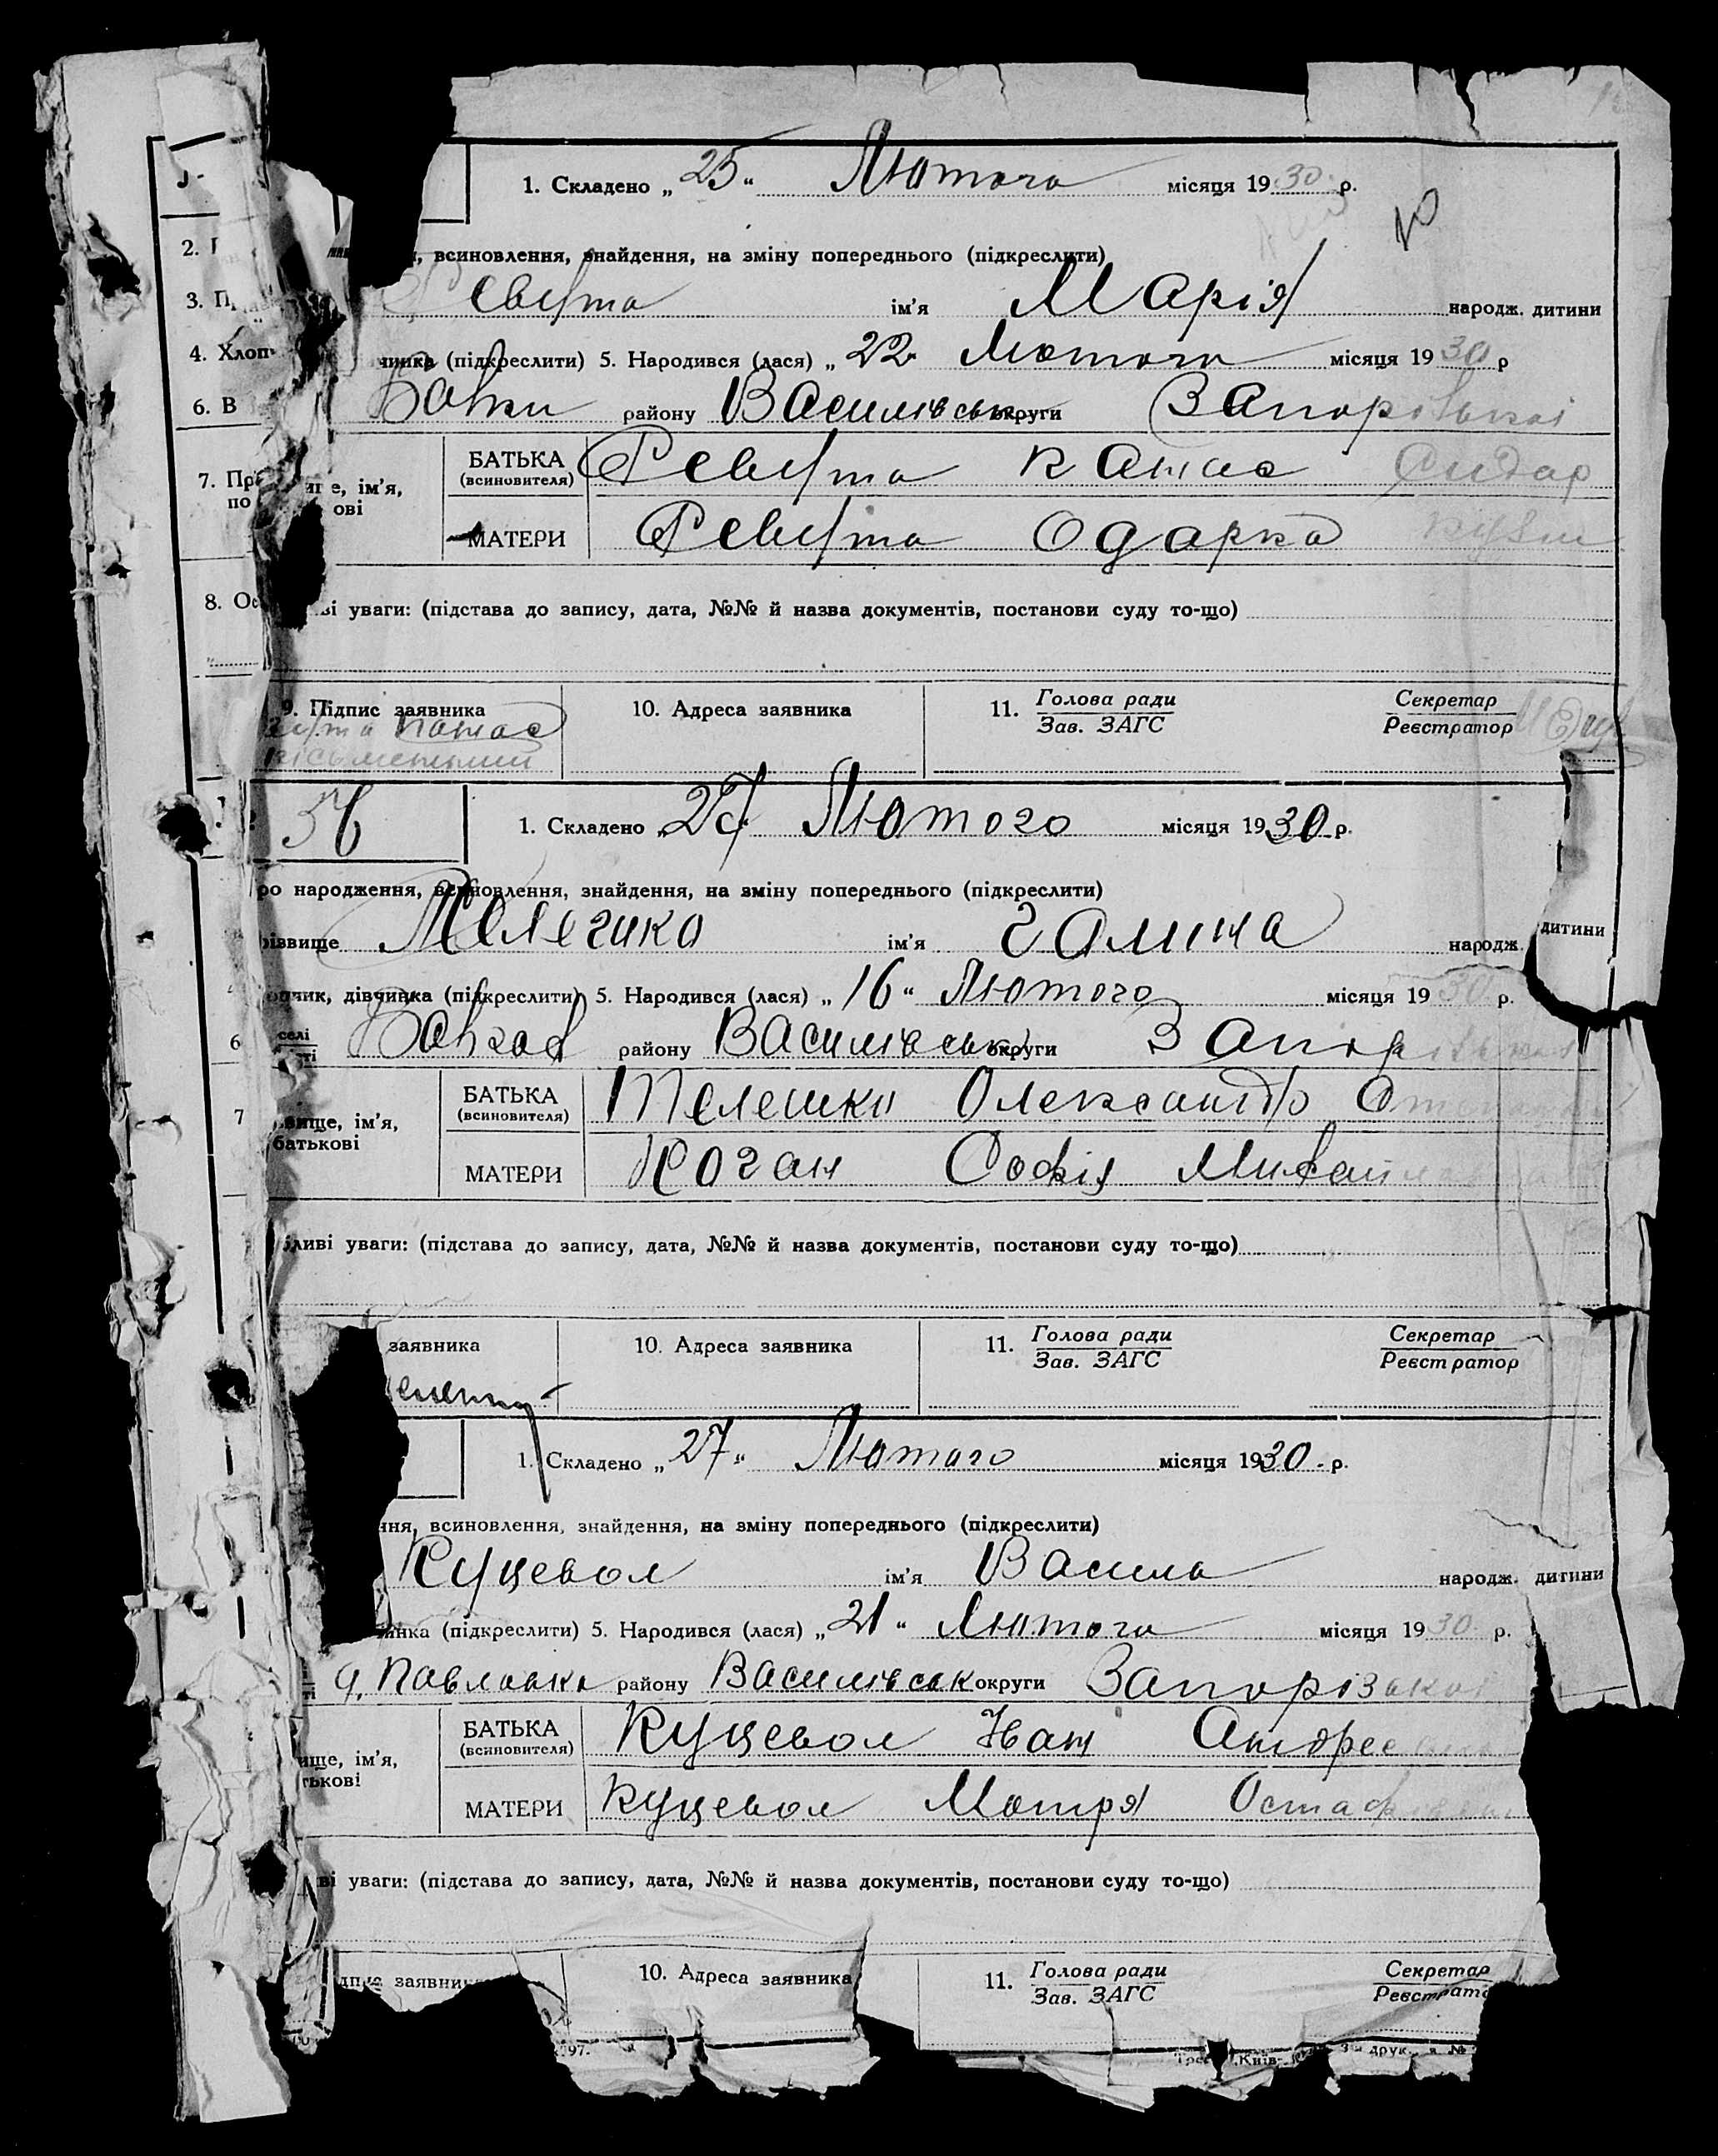 1. Складено „25“ Лютого місяця 1930 р.
2.
всиновлення, знайдення, на зміну попереднього (підкреслити)
3. Ревута ім'я Марія народж. дитини
4. Хлоп чинка (підкреслити) 5. Народився (лася) „22 Лютого місяця 1930 р
6. В району Василівськ округи Запорізької
7. Пр ще, ім'я, по ові
БАТЬКА (всиновителя) Ревута Сидор
МАТЕРИ Ревута Одарка
8. Ос ві уваги: (підстава до запису, дата, №№ й назва документів, постанови суду то-що)
9. Підпис заявника 10. Адреса заявника 11. Голова ради Секретар
Зав. ЗАГС Реєстратор
36 1. Складено „27 Лютого місяця 1930 р.
ро народження, всиновлення, знайдення, на зміну попереднього (підкреслити)
різвище ім'я Галина народж. дитини
опчик, дівчинка (підкреслити) 5. Народився (лася) „16“ Лютого місяця 1930 р.
6 селі району Василівськ округи Запорізької
7 вище, ім'я, батькові
БАТЬКА (всиновителя) Телешко Олександр
МАТЕРИ Коган Софія Михай
ливі уваги: (підстава до запису, дата, №№ й назва документів, постанови суду то-що)
заявника 10. Адреса заявника 11. Голова ради Секретар
Зав. ЗАГС Реєстратор
1. Складено „27“ Лютого місяця 1930 р.
ння, всиновлення, знайдення, на зміну попереднього (підкреслити)
Куцевол ім'я Василь народж. дитини
инка (підкреслити) 5. Народився (лася) „21“ Лютого місяця 1930 р.
Павловка району Василівськ округи Запорізької
ище, ім'я, тькові
БАТЬКА (всиновителя) Куцевол Іван Андрее
МАТЕРИ Куцевол Мотря Остаф
ві уваги: (підстава до запису, дата, №№ й назва документів, постанови суду то-що)
дпис заявник 10. Адреса заявника 11. Голова ради Секретар
Зав. ЗАГС Реєстрато
797. Київ- друк.